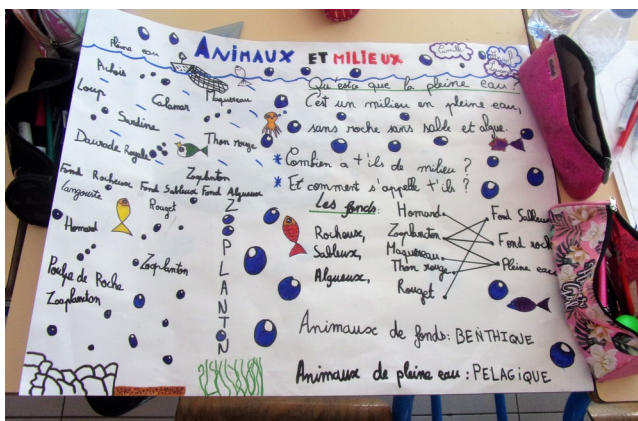 ANIMAUX ET MILIEUX
Pleine eau
Camille
Anchois
Loup
Calamar
Maquereau
Sardine
Daurade Royale
Thon rouge
Zooplanton
Fond Rocheux
Fond Sableux
Fond Algueux
langouste
Rouget
Homard
Zooplanton
Poulpe de Roche
Zooplanton
ZOOPLANTON
Qu'est ce que la pleine eau?
C'est un milieu en pleine eau,
sans roche sans sable et algue.
* Combien a t'ils de milieu ?
* Et comment s'appelle t'ils ?
Les fonds:
Rocheux,
Sableux,
Algueux,
Homard
Zooplanton
Maquereau
Thon rouge
Rouget
Fond Sableux
Fond roch
Pleine eau
Animaux de fonds: BENTHIQUE
Animaux de pleine eau : PELAGIQUE